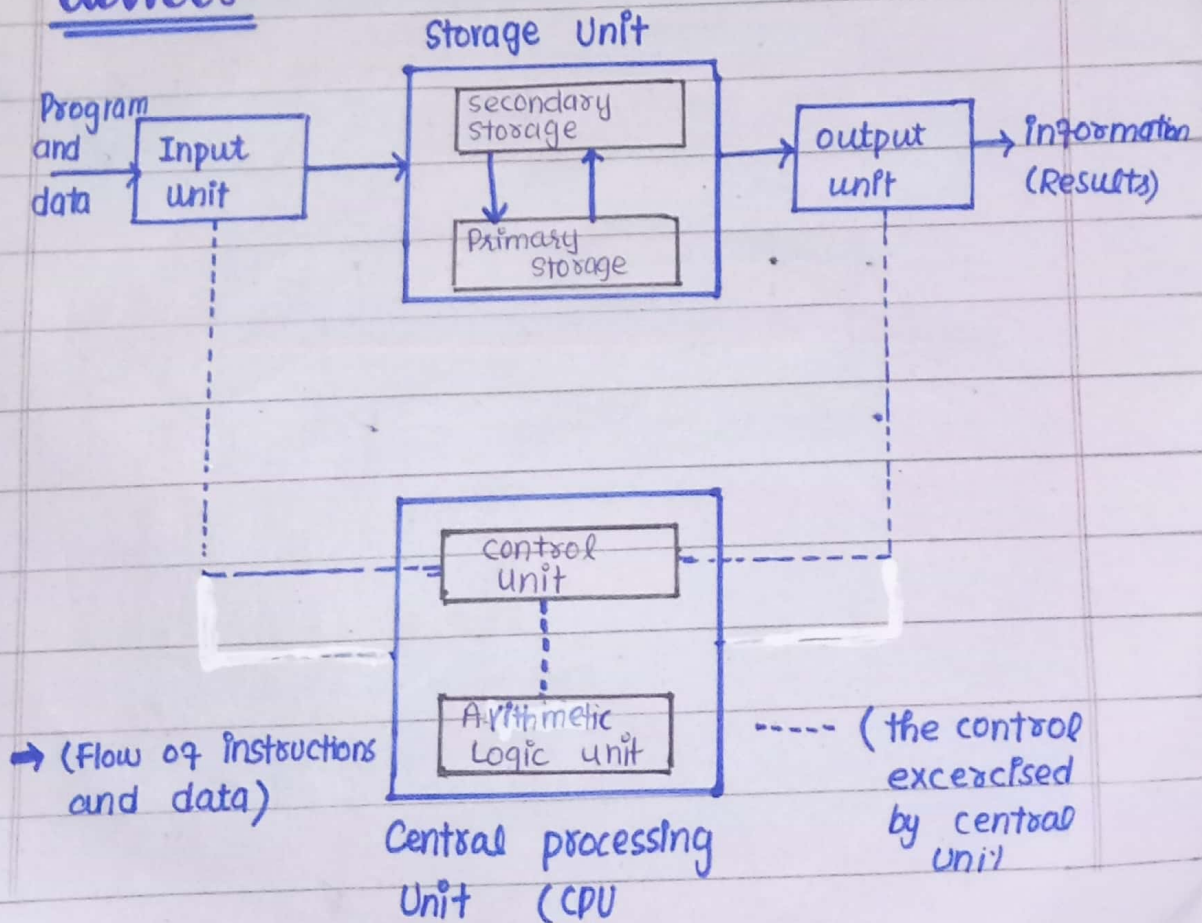 Storage Unit
Program
and
data
Input
unit
secondary
storage
Primary
storage
output
unit
information
(Results)
control
unit
Arithmetic
Logic unit
→ (Flow of instructions
and data)
----- (the control
excercised
by central
unit
Central processing
Unit (CPU